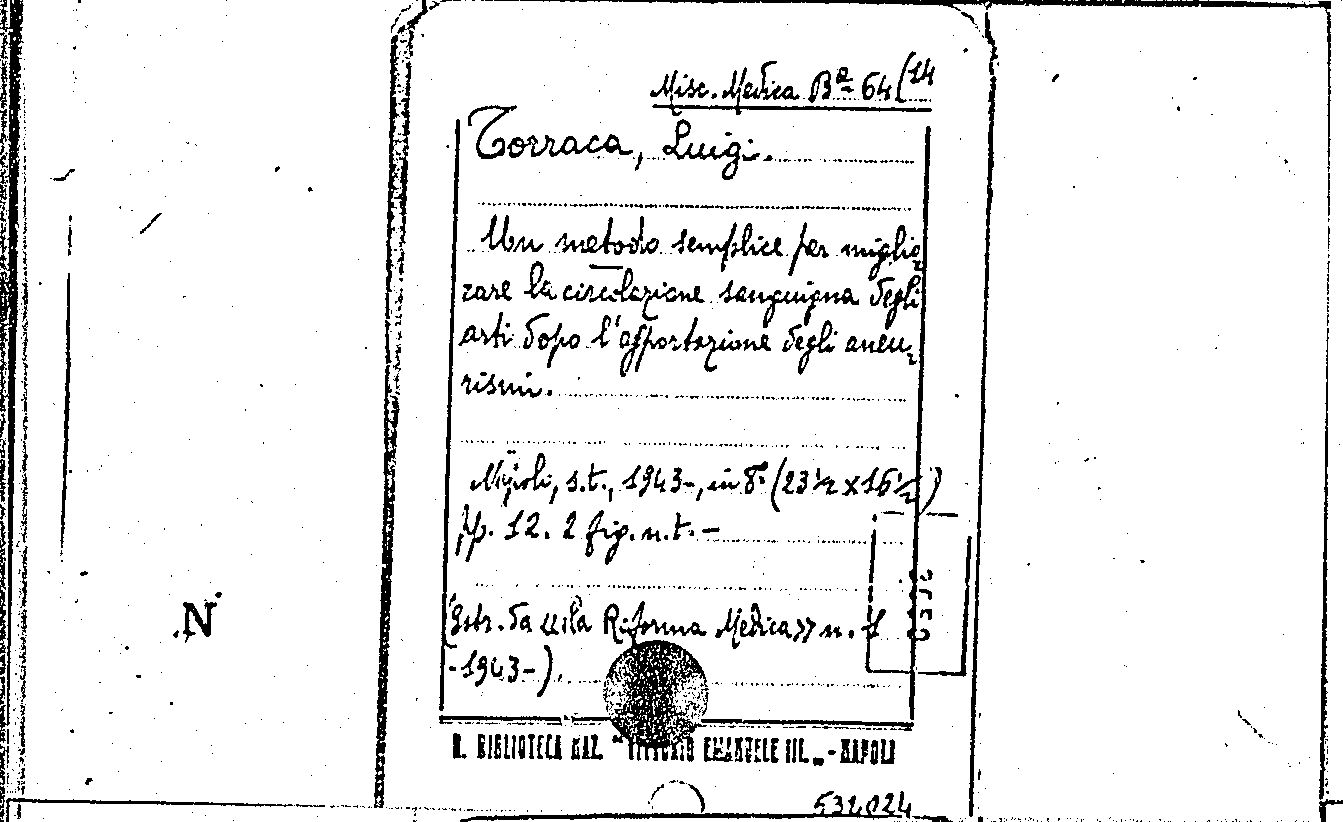 Misc. Medica Bª 64(14
Torraca, Luigi.
Un metodo semplice per miglio-
rare la circolazione sanguigna degli
arti dopo l'asportazione degli aneu-
rismi.
Napoli, s.t., 1943-, in 8º (23½ x 16½)
pp. 12. 2 fig. n.t. -
(Estr. da «La Riforma Medica» n. 1
-1943-).
N
R. BIBLIOTECA NAZ. "VITTORIO EMANUELE III." - NAPOLI
532024